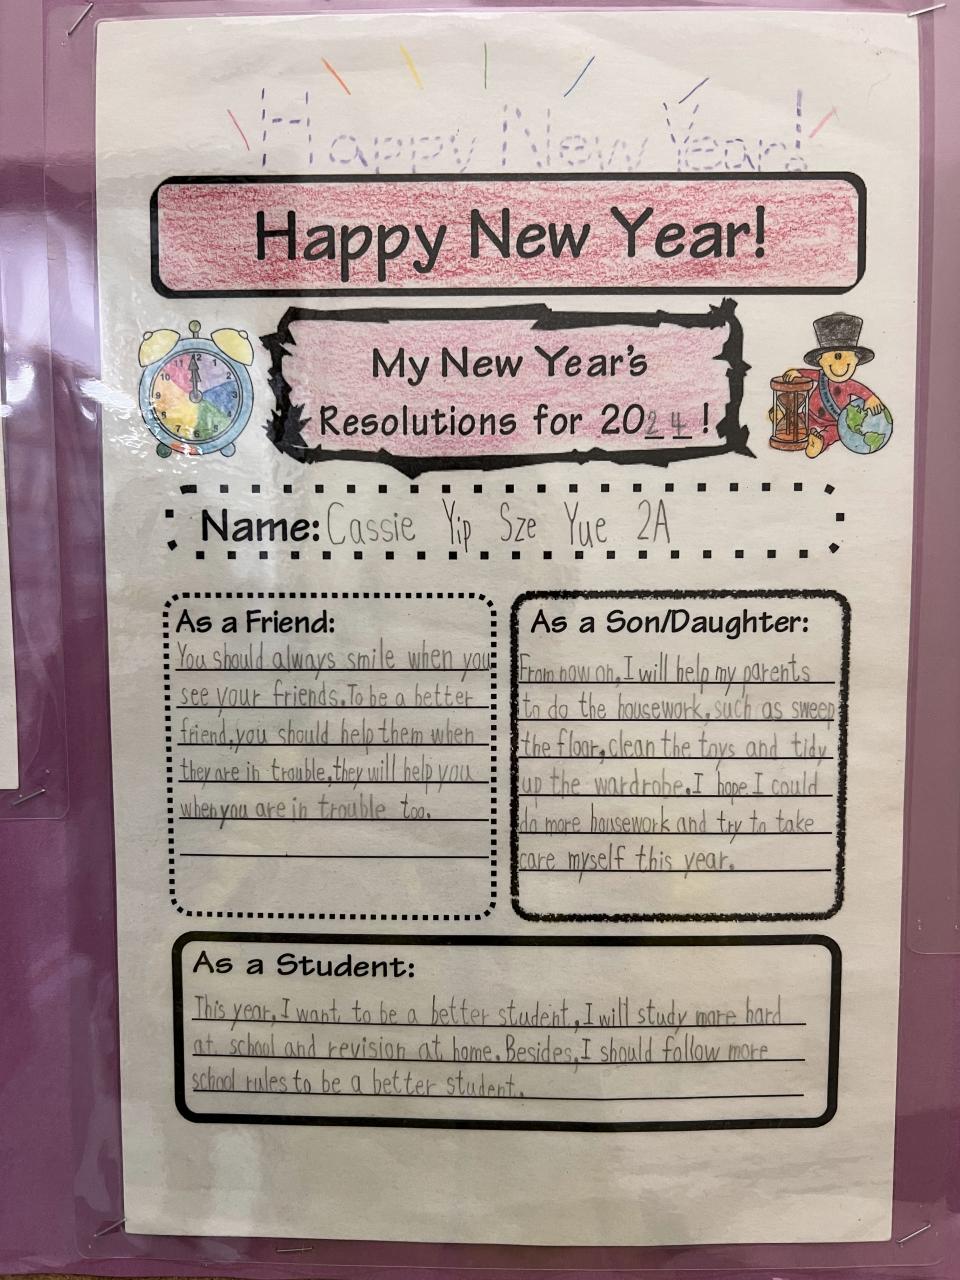 Happy New Year!
Happy New Year!
My New Year's
Resolutions for 2024!
Name: Cassie Yip Sze Yue 2A
As a Friend:
You should always smile when you
see your friends. To be a better
friend, you should help them when
they are in trouble, they will help you
when you are in trouble too.
As a Son/Daughter:
From now on, I will help my parents
to do the housework, such as sweep
the floor, clean the toys and tidy
up the wardrobe. I hope I could
do more housework and try to take
care myself this year.
As a Student:
This year, I want to be a better student, I will study more hard
at school and revision at home. Besides, I should follow more
school rules to be a better student.